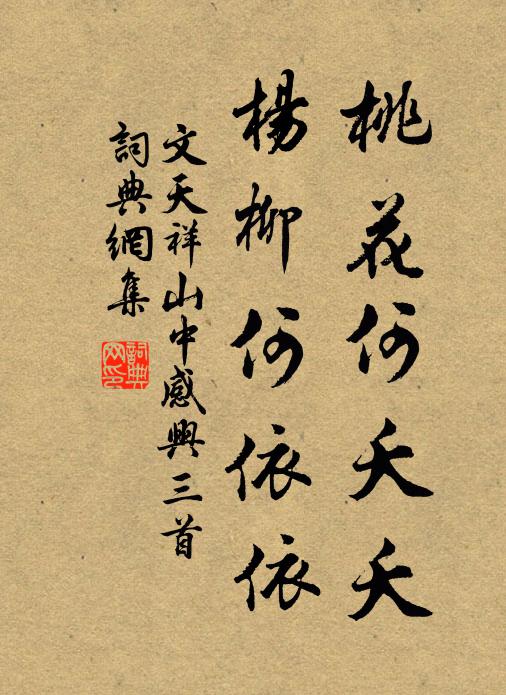 桃花何夭夭
楊柳何依依
文天祥山中感興三首
詞典網集
詞典網印